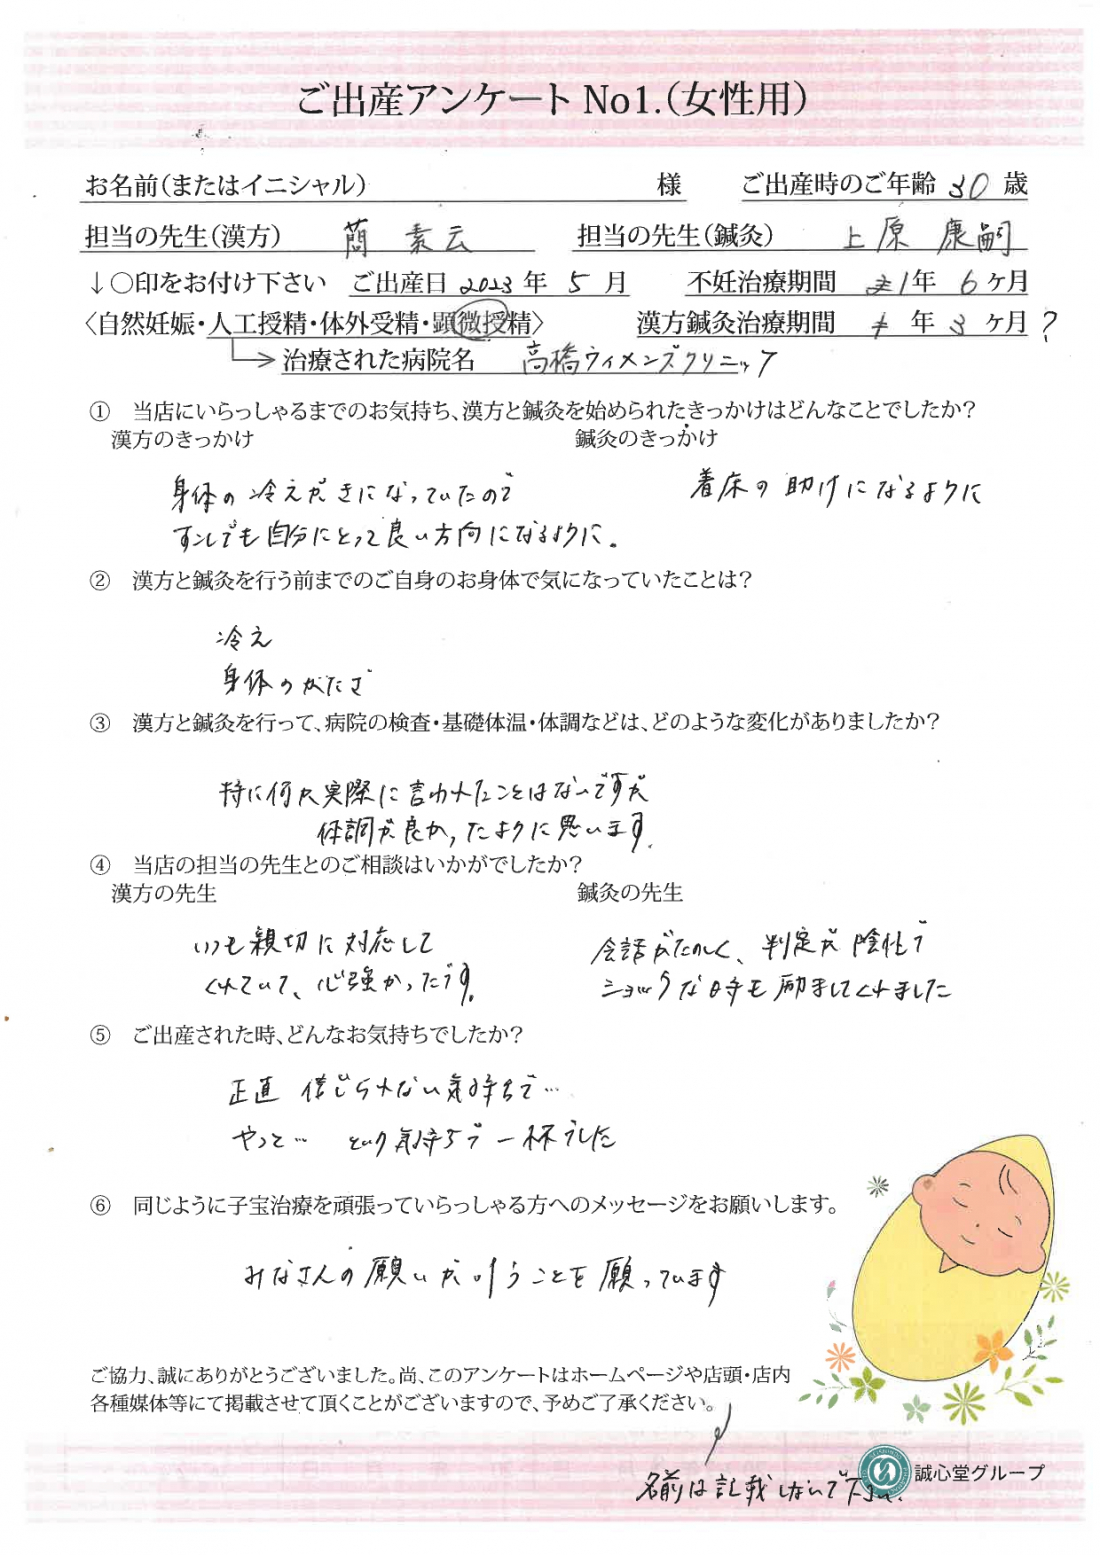 ご出産アンケート No1.(女性用)
お名前(またはイニシャル) 様 ご出産時のご年齢 30 歳
担当の先生(漢方) 簡 素云 担当の先生(鍼灸) 上原 康嗣
↓○印をお付け下さい ご出産日 2023 年 5 月 不妊治療期間 1年 6 ヶ月
〈自然妊娠・人工授精・体外受精・顕微授精〉 漢方鍼灸治療期間 年 3 ヶ月?
治療された病院名 高橋ウィメンズクリニック
① 当店にいらっしゃるまでのお気持ち、漢方と鍼灸を始められたきっかけはどんなことでしたか?
漢方のきっかけ 鍼灸のきっかけ
身体の冷えがきになっていたので 着床の助けになるように
すこしでも自分にとって良い方向になるように。
② 漢方と鍼灸を行う前までのご自身のお身体で気になっていたことは?
冷え
身体のかたさ
③ 漢方と鍼灸を行って、病院の検査・基礎体温・体調などは、どのような変化がありましたか?
特に何か実際に言われたことはないですが
体調が良かったように思います。
④ 当店の担当の先生とのご相談はいかがでしたか?
漢方の先生 鍼灸の先生
いつも親切に対応して 会話がたのしく、判定が陰性で
くれていて、心強かったです。 ショックな時も励ましてくれました
⑤ ご出産された時、どんなお気持ちでしたか?
正直 信じられない気持ちで…
やっと… という気持ちで一杯でした
⑥ 同じように子宝治療を頑張っていらっしゃる方へのメッセージをお願いします。
みなさんの願いが叶うことを願っています
ご協力、誠にありがとうございました。尚、このアンケートはホームページや店頭・店内
各種媒体等にて掲載させて頂くことがございますので、予めご了承ください。
誠心堂グループ
名前は記載しないで下さい。